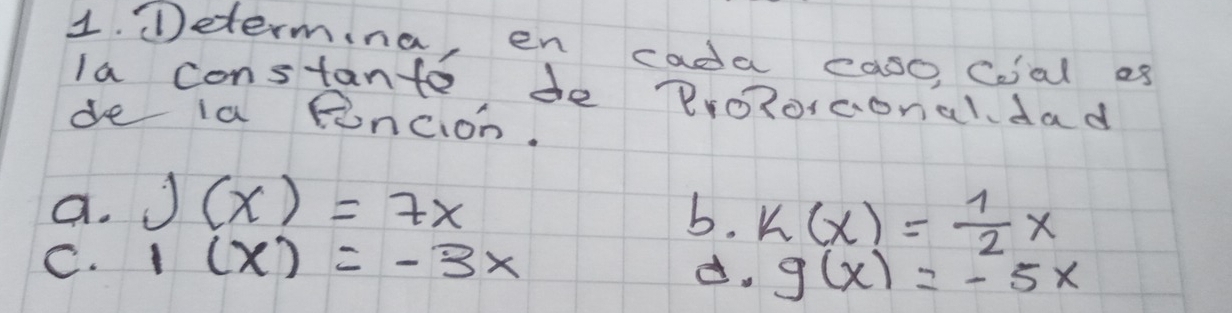 1. Determina, en cada caso, cúal es
la constante de Proporcionalidad
de la función.
a. J(x) = 7x b. K(x) = 1/2 x
c. l(x) = -3x d. g(x) = -5x